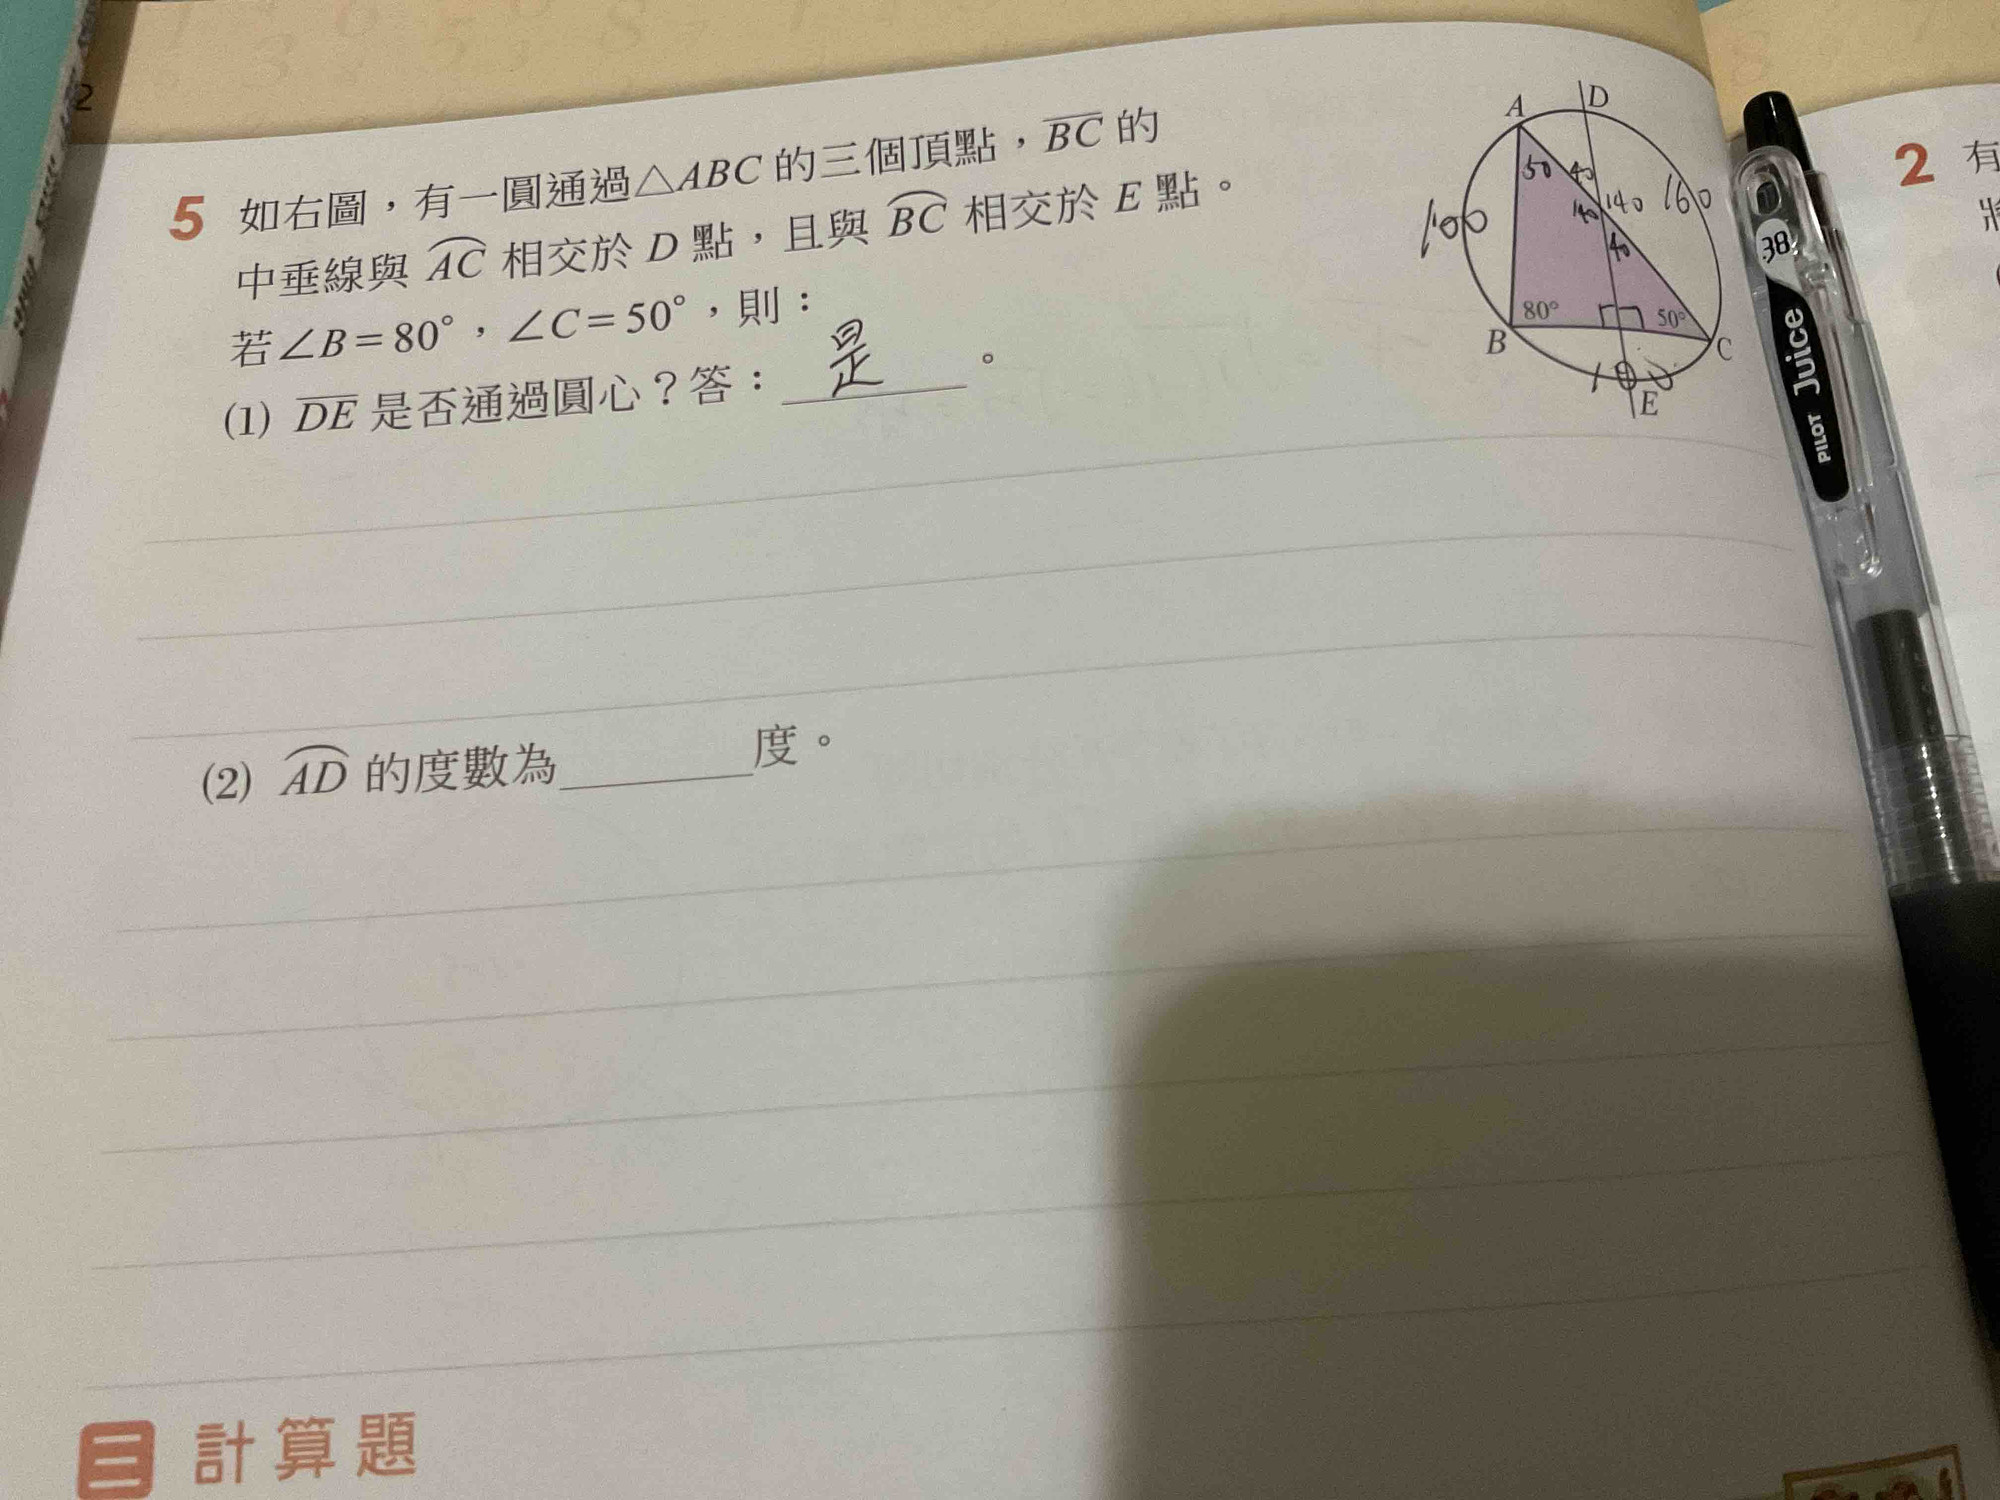 2
5 如右圖，有一圓通過△ABC 的三個頂點，BC 的
中垂線與 AC 相交於 D 點，且與 BC 相交於 E 點。
若∠B＝80°，∠C＝50°，則：
(1) DE 是否通過圓心？答：是。
(2) AD 的度數為＿＿＿度。
A
D
50
40
140
160
140
100
40
80°
50°
B
C
100
E
三 計算題
2 有
38
Juice
PILOT